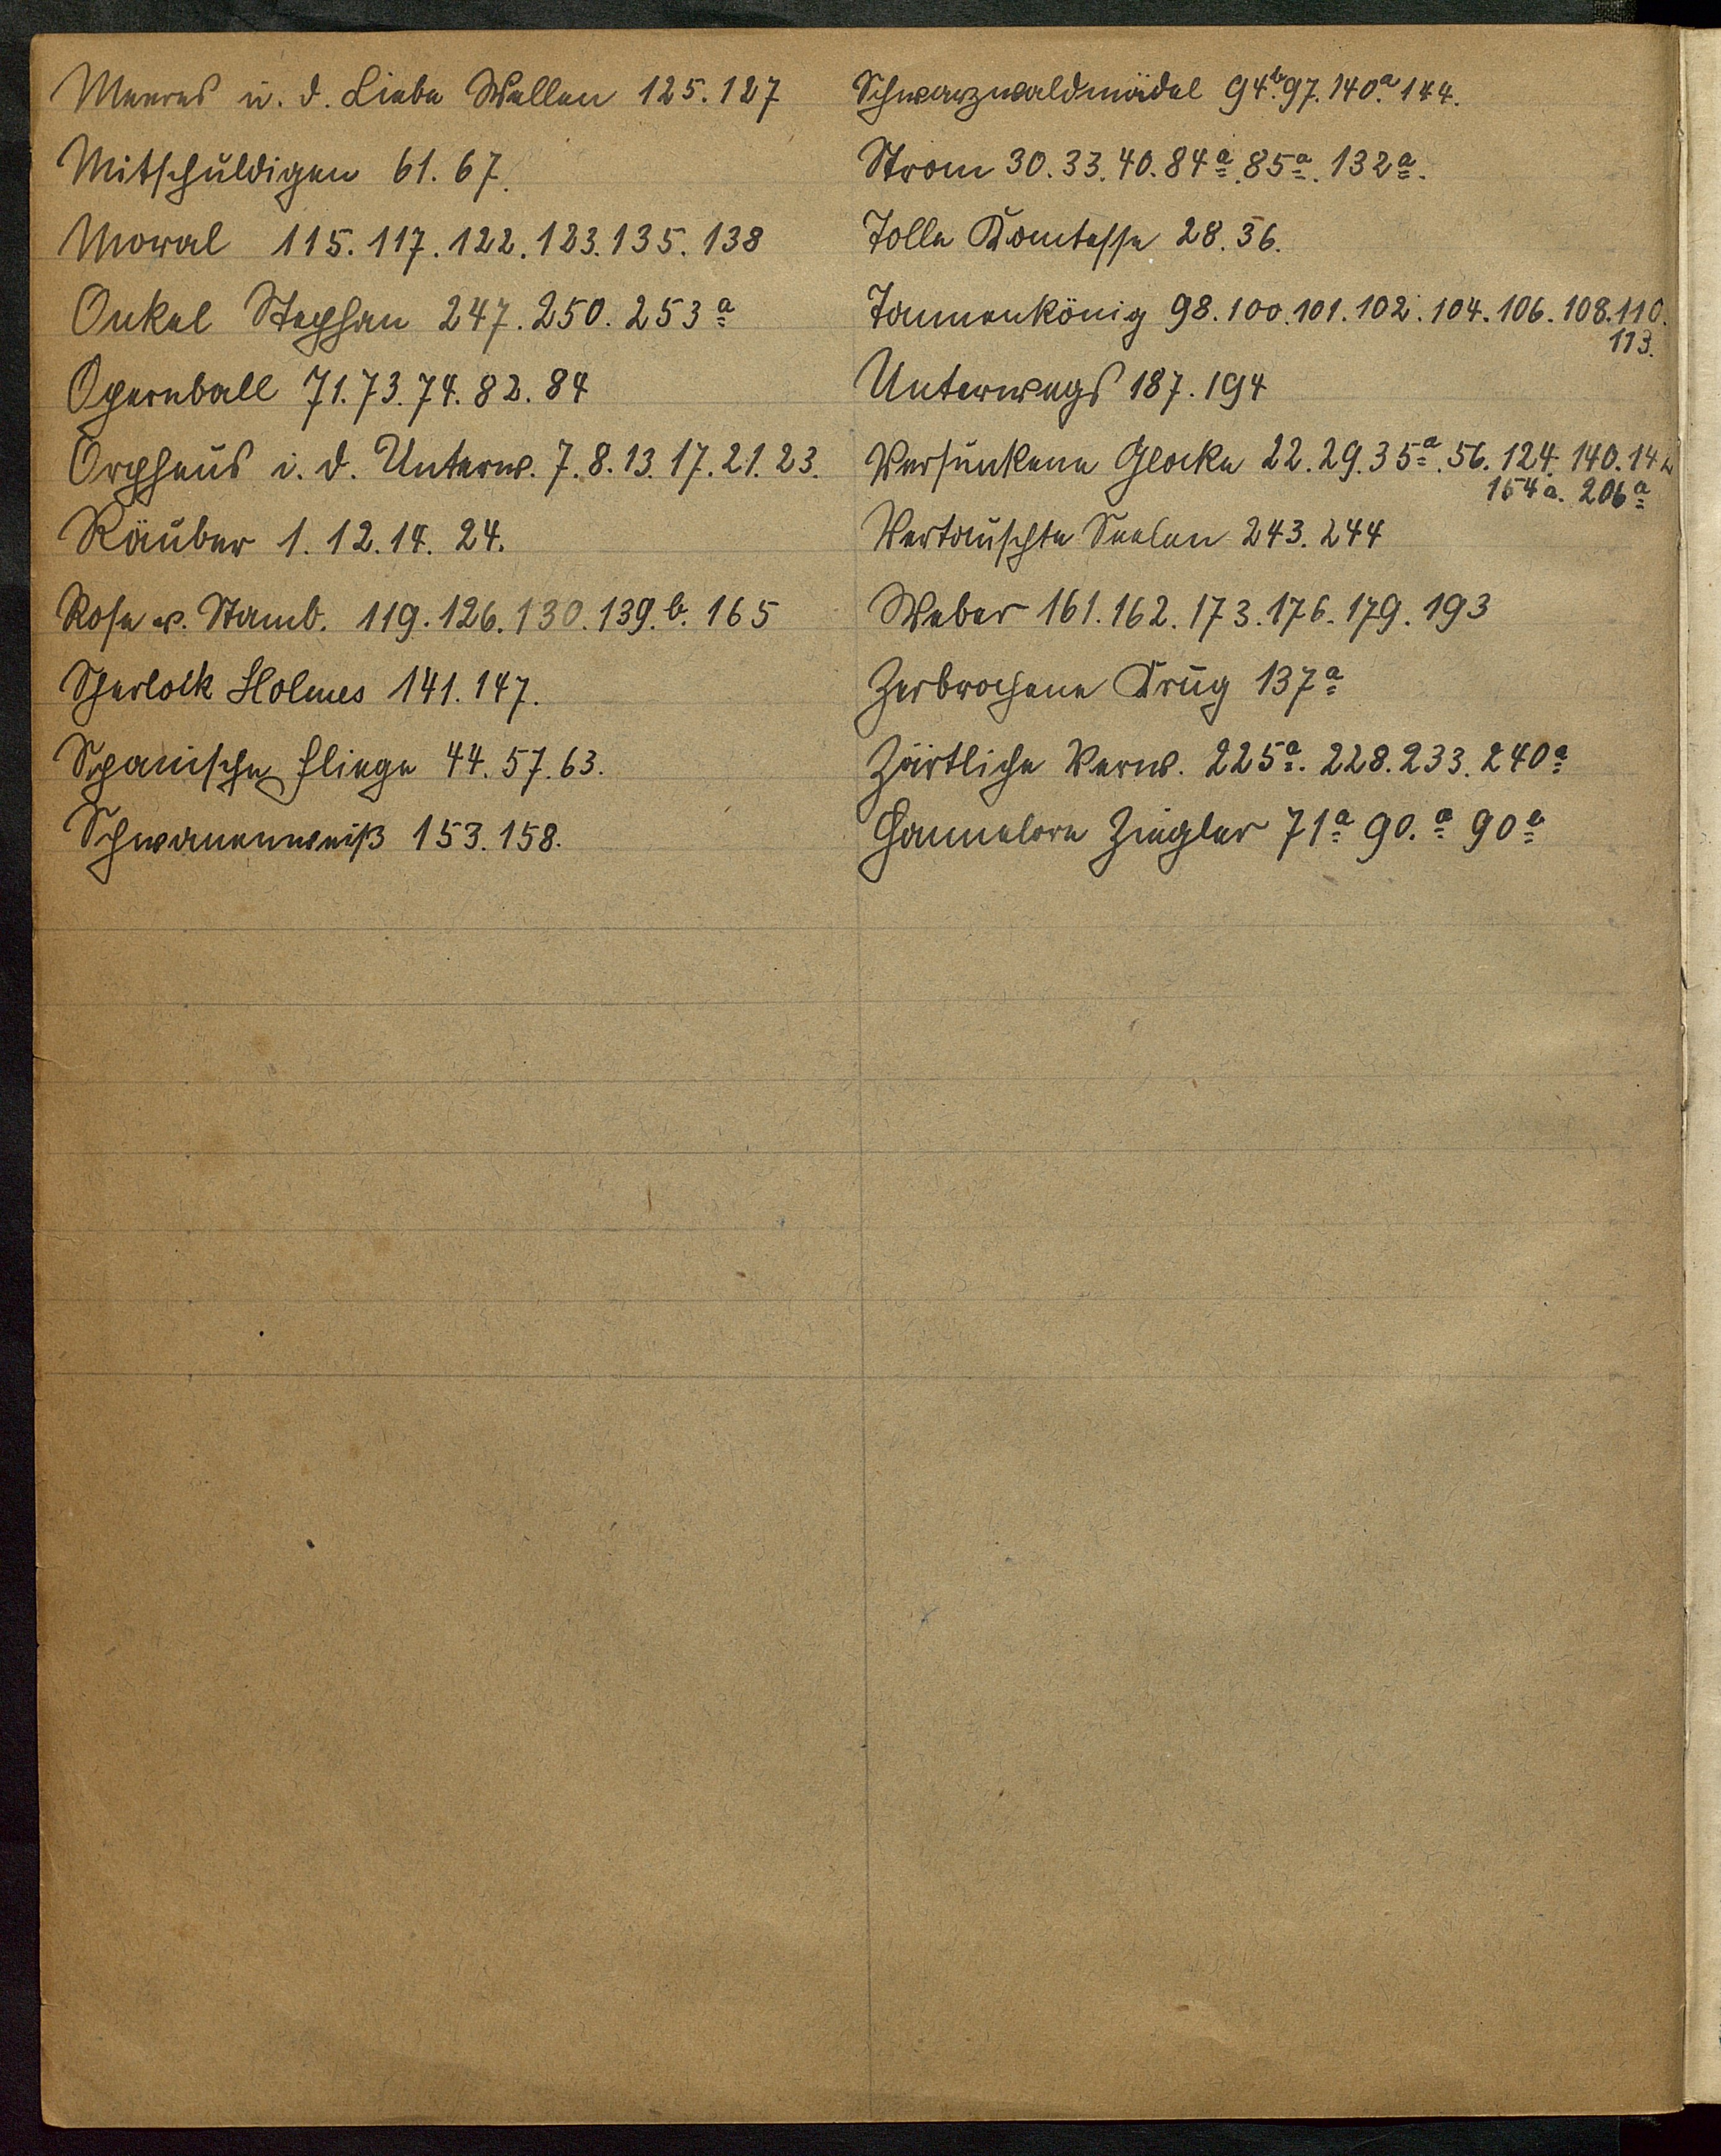 Meeres u. d. Liebe Wellen 125. 127
Mitschuldigen 61. 67.
Moral 115. 117. 122. 123. 135. 138
Onkel Stephan 247. 250. 253 a
Opernball 71. 73. 74. 82. 84
Orpheus i. d. Unterw. 7. 8. 13. 17. 21. 23.
Räuber 1. 12. 14. 24.
Rose v. Stamb. 119. 126. 130. 139. b. 165
Sherlock Holmes 141. 147.
Spanische Fliege 44. 57. 63.
Schwanenweiß 153. 158.
Schwarzwaldmädel 94 b. 97. 140. a 144.
Strom 30. 33. 40. 84 a. 85 a. 132 a.
Tolle Komtesse 28. 36.
Tannenkönig 98. 100. 101. 102. 104. 106. 108. 110.
113.
Unterwegs 187. 194
Versunkene Glocke 22. 29. 35 a. 56. 124. 140.
154 a. 206 a
Vertauschte Seelen 243. 244
Weber 161. 162. 173. 176. 179. 193
Zerbrochene Krug 137 a
Zärtliche Verw. 225 a. 228. 233. 240 a
Hannelore Ziegler 71 a 90. a 90 a